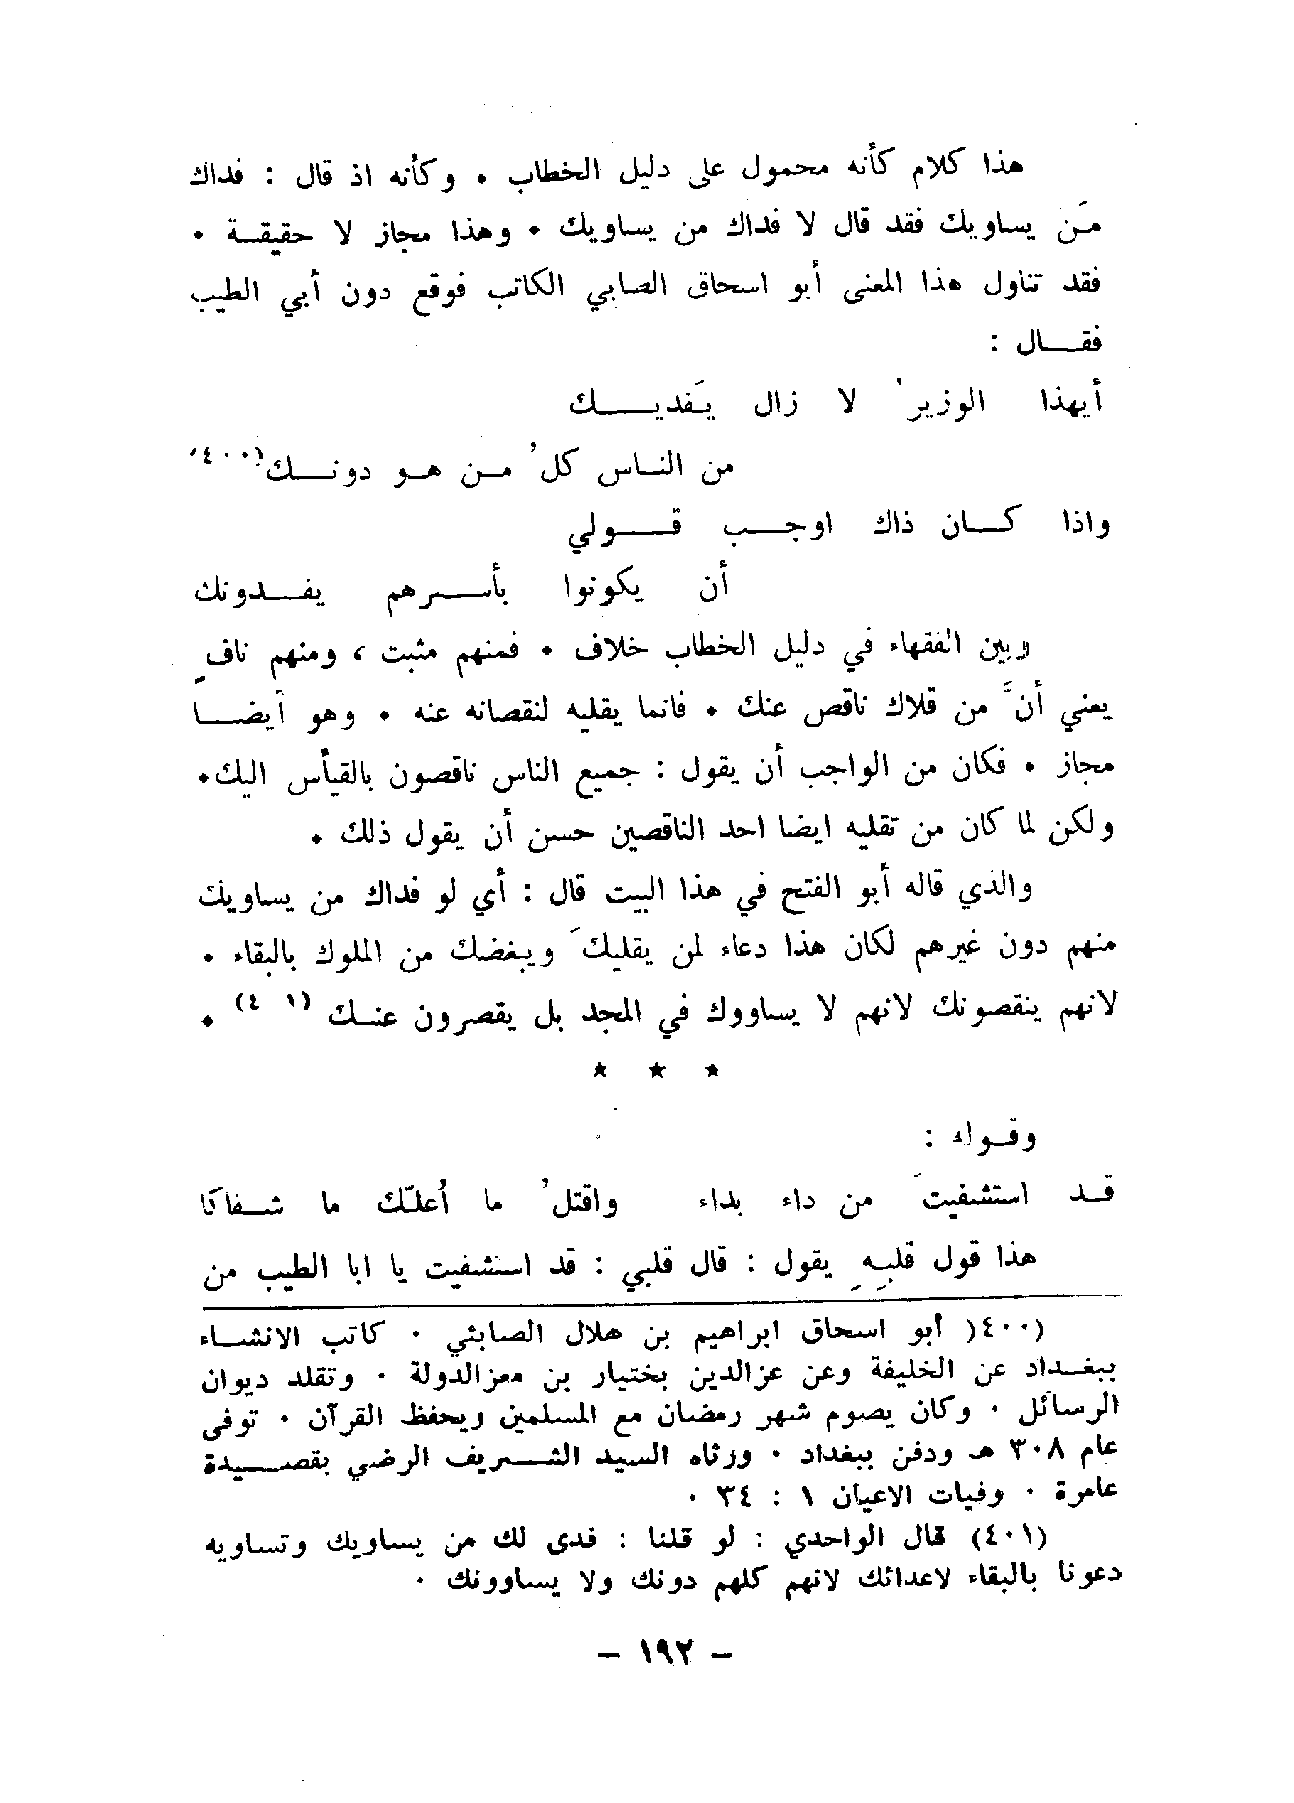 هذا كلام كأنه محمول على دليل الخطاب • وكأنه اذ قال : فداك
مَن يساويك فقد قال لا فداك من يساويك • وهذا مجاز لا حقيقة •
فقد تناول هذا المعنى أبو اسحاق الصابي الكاتب فوقع دون أبي الطيب
فقال :
أيهذا الوزيرُ لا زال يَفديك
من الناس كلُ من هو دونك (٤٠٠)
واذا كان ذاك اوجب قولي
أن يكونوا بأسرهم يفدونك
وبين الفقهاء في دليل الخطاب خلاف • فمنهم مثبت ، ومنهم نافٍ
يعني أنَّ من قلاك ناقص عنك • فانما يقليه لنقصانه عنه • وهو أيضا
مجاز • فكان من الواجب أن يقول : جميع الناس ناقصون بالقيأس اليك•
ولكن لما كان من تقليه ايضا احد الناقصين حسن أن يقول ذلك •
والذي قاله أبو الفتح في هذا البيت قال : أي لو فداك من يساويك
منهم دون غيرهم لكان هذا دعاء لمن يقليكَ ويبغضك من الملوك بالبقاء •
لانهم ينقصونك لانهم لا يساووك في المجد بل يقصرون عنك (٤٠١) •
* * *
وقوله :
قد استشفيتَ من داء بداء واقتلُ ما أعلّك ما شفاكا
هذا قول قلبهِ يقول : قال قلبي : قد استشفيت يا ابا الطيب من
(٤٠٠) أبو اسحاق ابراهيم بن هلال الصابئي • كاتب الانشاء
ببغداد عن الخليفة وعن عزالدين بختيار بن معزالدولة • وتقلد ديوان
الرسائل • وكان يصوم شهر رمضان مع المسلمين ويحفظ القرآن • توفى
عام ٣٠٨ هـ ودفن ببغداد • ورثاه السيد الشريف الرضي بقصيدة
عامرة • وفيات الاعيان ١ : ٣٤ •
(٤٠١) قال الواحدي : لو قلنا : فدى لك من يساويك وتساويه
دعونا بالبقاء لاعدائك لانهم كلهم دونك ولا يساوونك •
– ١٩٢ –